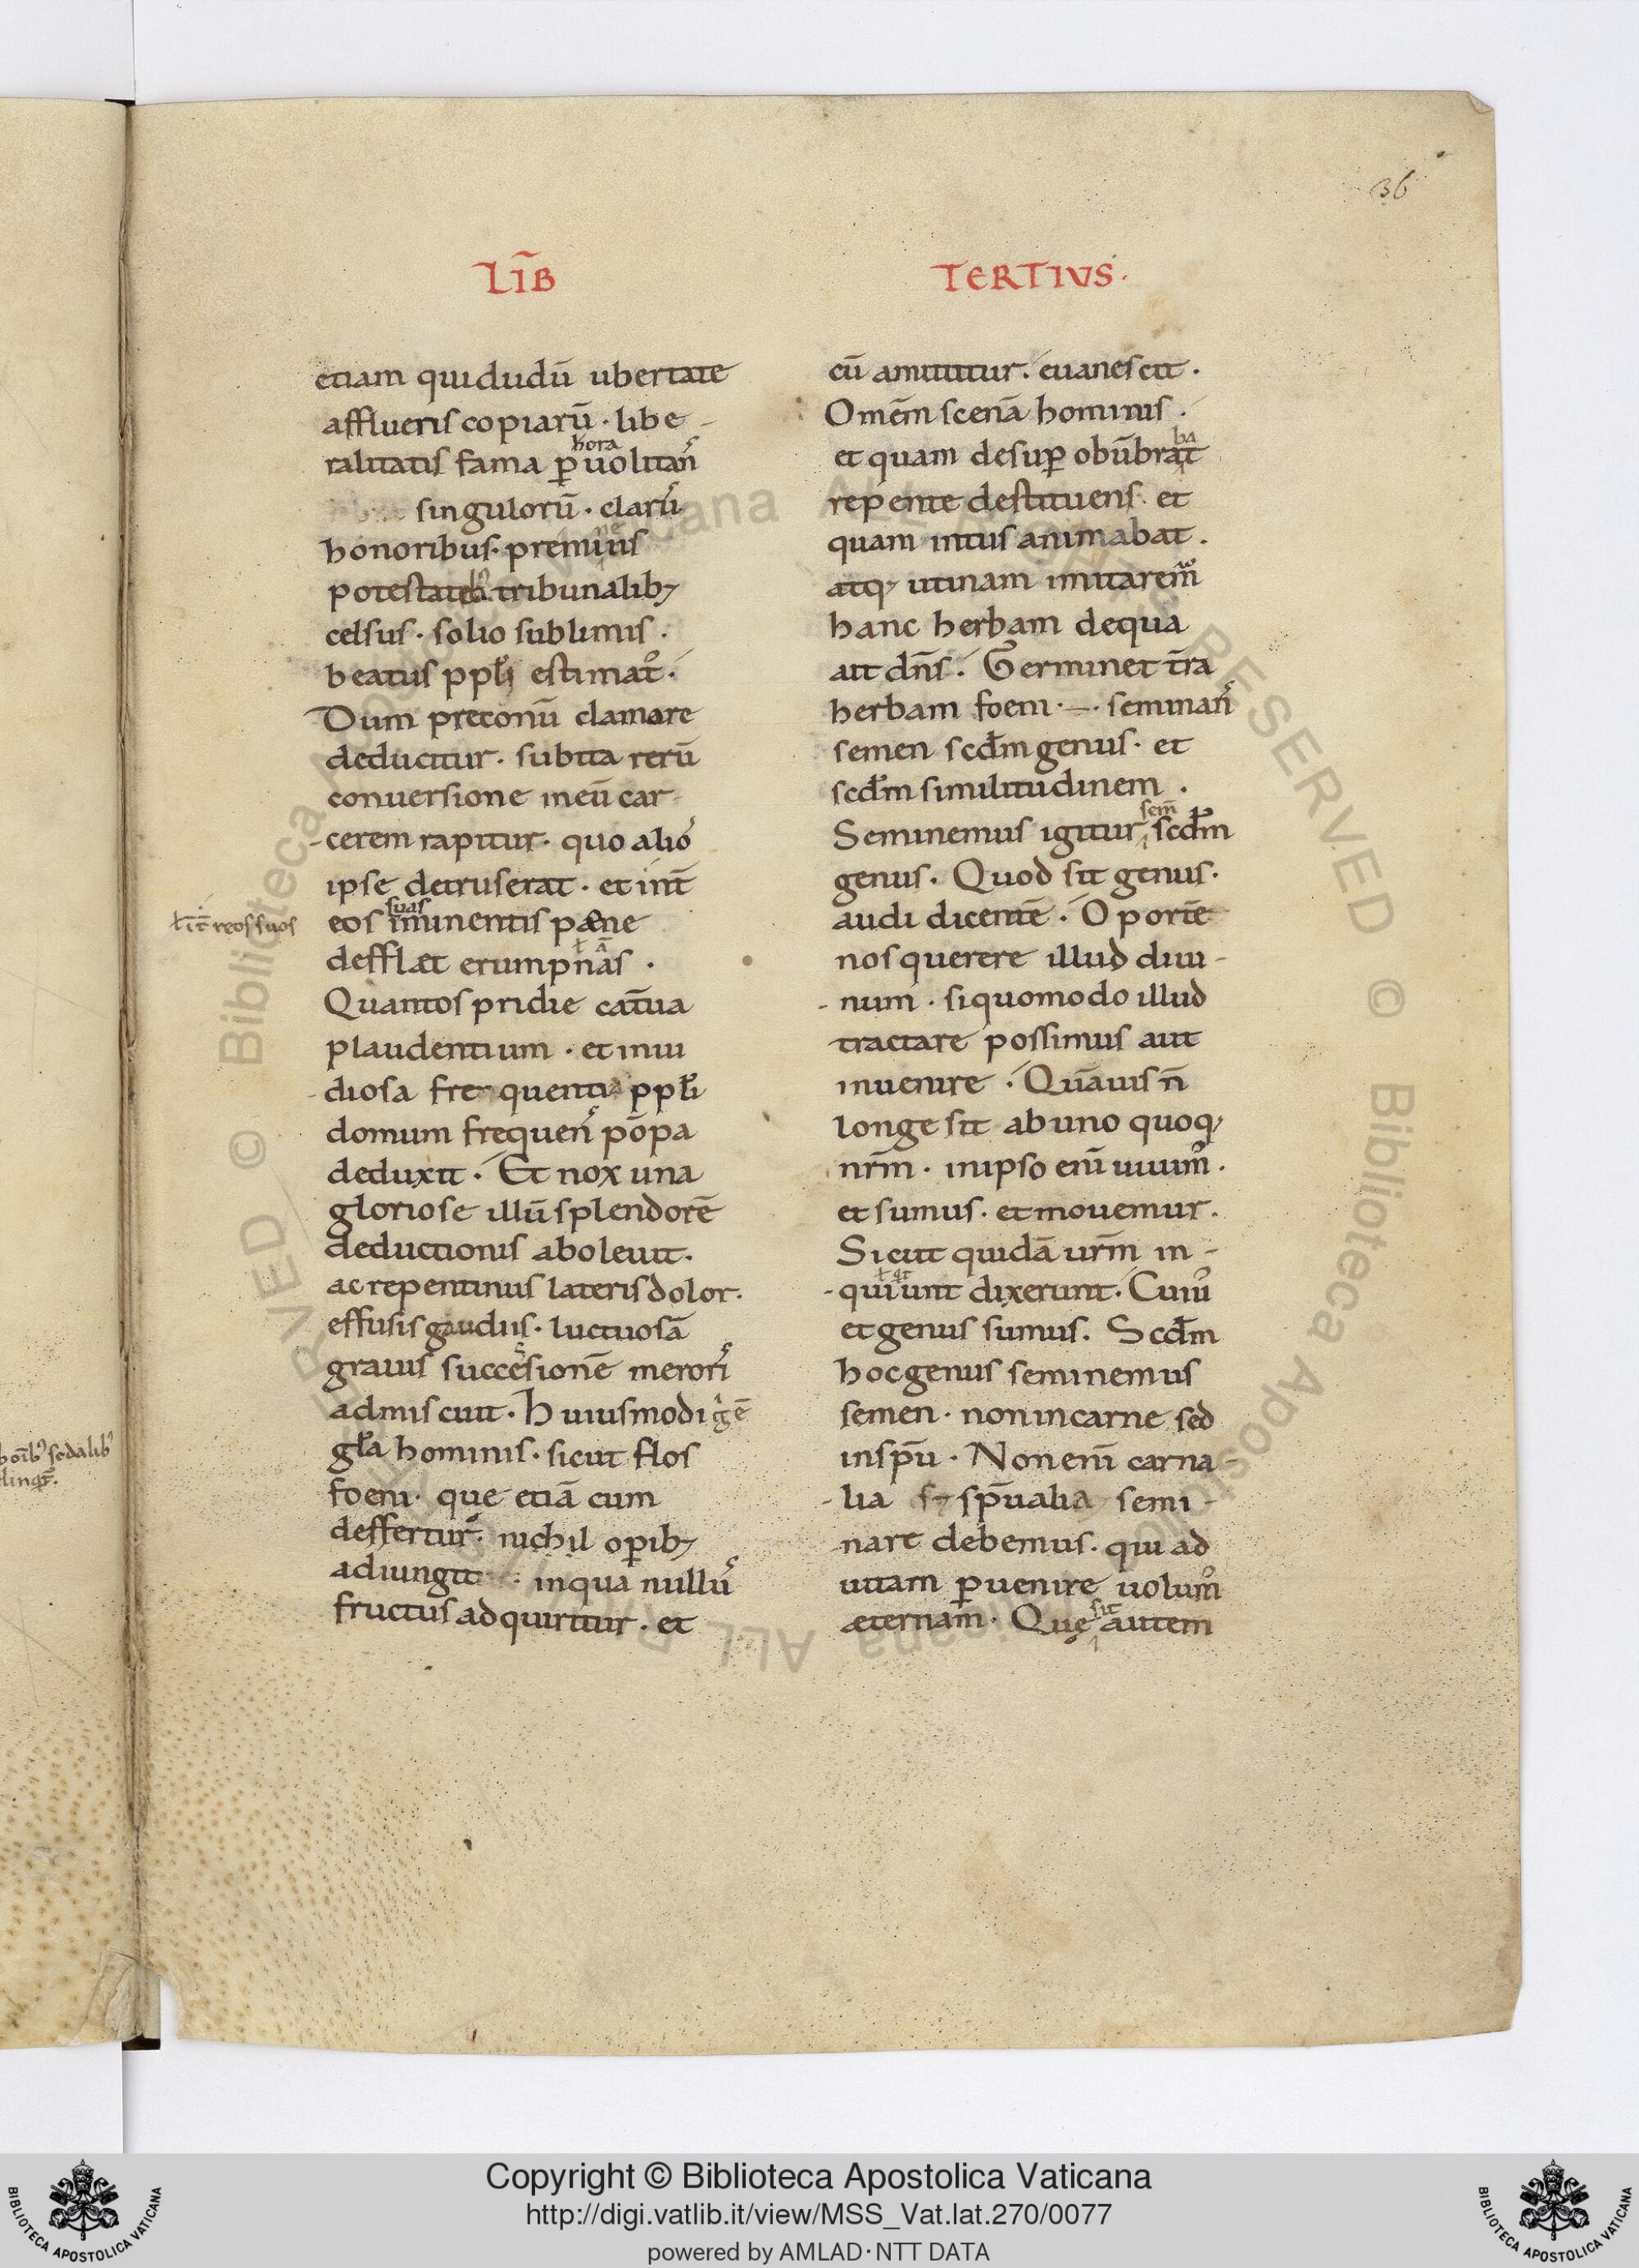 36
LIB̄
TERTIVS.
etiam qui dudū ubertate
afflueris copiarū · libe-
ralitatis fama p̱ uolitans
hora
singulorū · clarus
honoribus · premitis
ne
potestatibꝰ tribunalibꝫ
celsus · solio sublimis ·
beatus ppłi estimat᷑ ·
Dum preconū clamore
deducitur · subita rerū
conuersione in eū car-
-cerem rapitur · quo alios
ipse detruserat · et int̄
ł it̄ reos suos
eos iminentis pæne
suas
defflæt erumpnas ·
ł ā
Quantos pridie cat̄ua
plaudentium · et inui
-diosa frequentia ppłi
domum frequens pōpa
deduxit · Et nox una
gloriose illū splendorē
deductionis aboleuit.
ac repentinus lateris dolor.
effusis gaudiis · luctuosā
grauis successionē meroris
admiscuit · Huiusmodi g̊ ē
gła hominis · sicut flos
foeni · que etiā cum
deffertur · nichil op̱ibꝫ
adiungit in qua nullus
fructus adquiritur · et
eū amittitur · euanescit ·
Omēm scenā hominis ·
et quam desup̱ obūbrat
ba
repente destituens · et
quam intus animabat ·
atqꝫ utinam imitaremꝰ
hanc herbam de qua
ait dn̄s · Germinet tr̄a
herbam foeni · — · seminans
semen scđm genus · et
scđm similitudinem ·
Seminemus igitur scđm
sem̄
genus · Quod sit genus ·
audi dicentē · Oportē
nos querere illud diui-
-num · si quomodo illud
tractare possimus aut
inuenire · Quāuis n̄
longe sit ab uno quoqꝫ
nr̄m · in ipso enī uiuimꝰ ·
et sumus · et mouemur ·
Sicut quidā ur̄m in-
-quiunt dixerunt · Cuiꝰ
et genus sumus. Scđm
hoc genus seminemus
semen · non in carne sed
in sp̄u · Non enī carna-
-lia sꝫ sp̄ualia semi-
nare debemus · qui ad
uitam p̱uenire uolumꝰ
æternam · Quę autem
sit
hoīb᷒ sed alib᷒
Copyright © Biblioteca Apostolica Vaticana
http://digi.vatlib.it/view/MSS_Vat.lat.270/0077
powered by AMLAD·NTT DATA
BIBLIOTECA APOSTOLICA VATICANA
BIBLIOTECA APOSTOLICA VATICANA